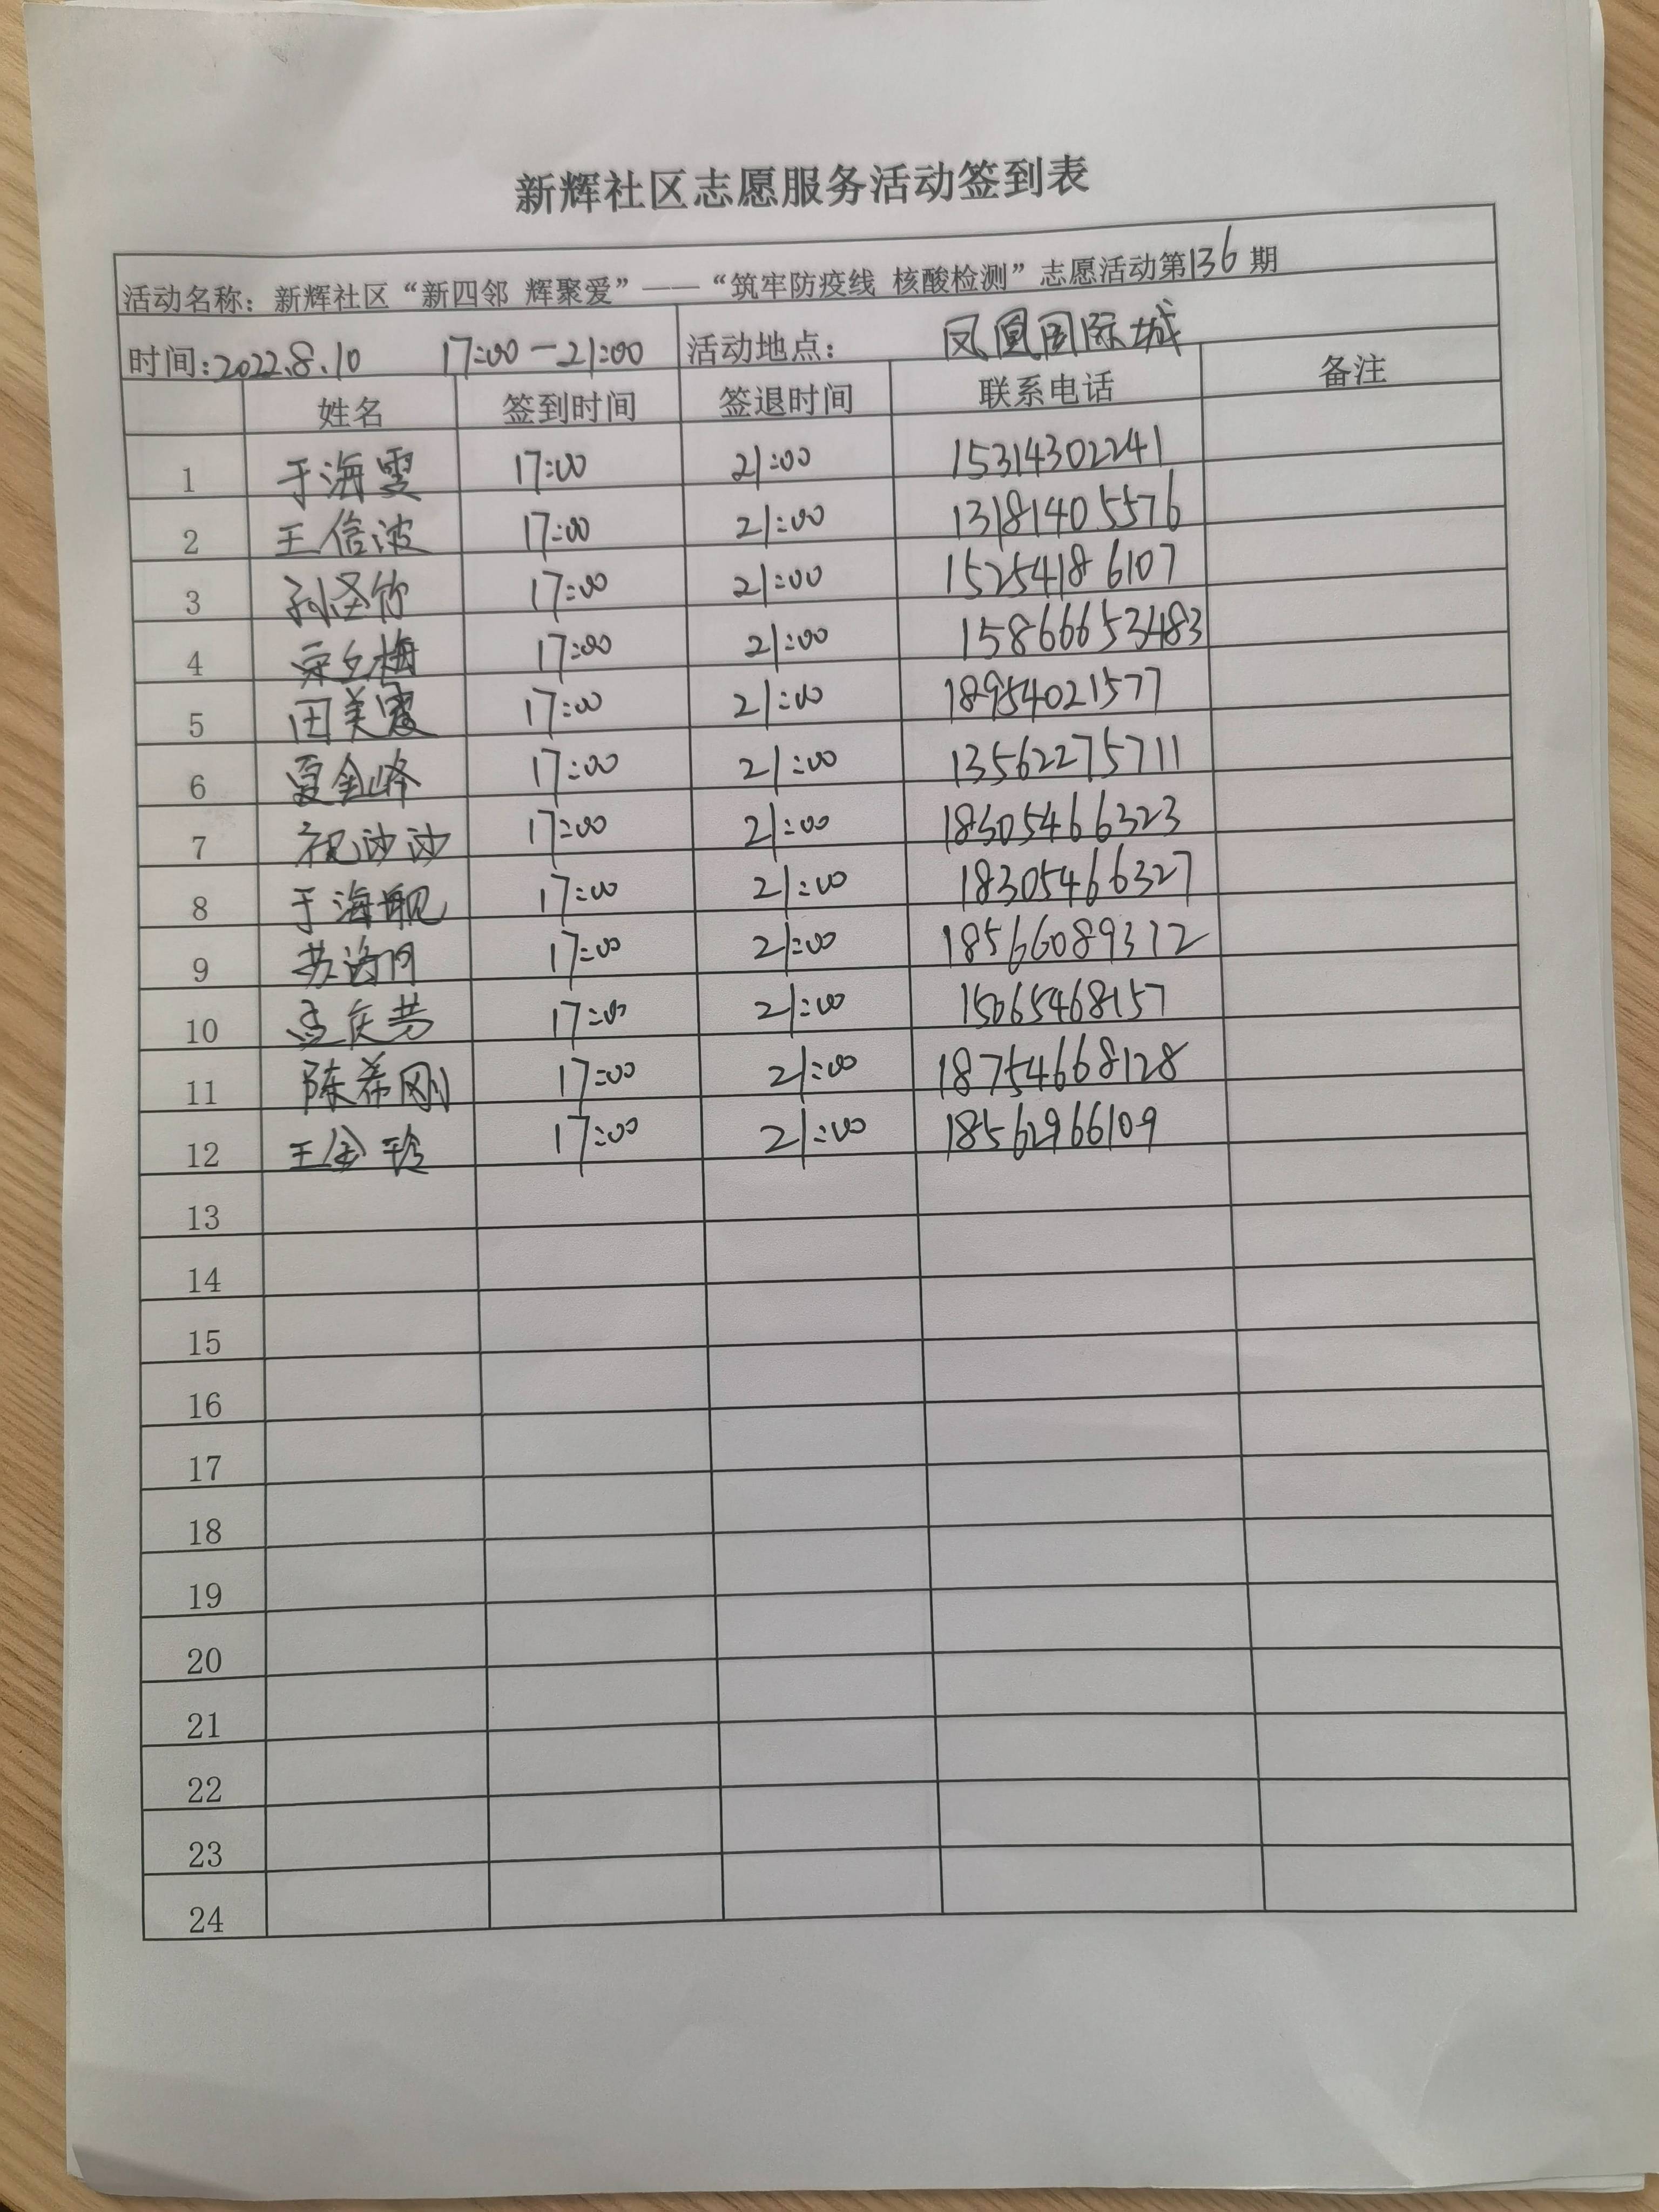 新辉社区志愿服务活动签到表
活动名称：新辉社区“新四邻 辉聚爱”——“筑牢防疫线 核酸检测”志愿活动第136期
时间：2022.8.10 17:00－21:00 活动地点： 凤凰国际城
姓名 签到时间 签退时间 联系电话 备注
1 于海雯 17:00 21:00 15314302241
2 王信波 17:00 21:00 13181405576
3 孙圣 17:00 21:00 15254186107
4 梅 17:00 21:00 15866653483
5 田美霞 17:00 21:00 18954021577
6 夏金峰 17:00 21:00 13562275711
7 祝沙沙 17:00 21:00 18305466323
8 于海靓 17:00 21:00 18305466327
9 苏海 17:00 21:00 18566089312
10 孟庆芳 17:00 21:00 15065468157
11 陈希刚 17:00 21:00 18754668128
12 王金玲 17:00 21:00 18562966109
13
14
15
16
17
18
19
20
21
22
23
24